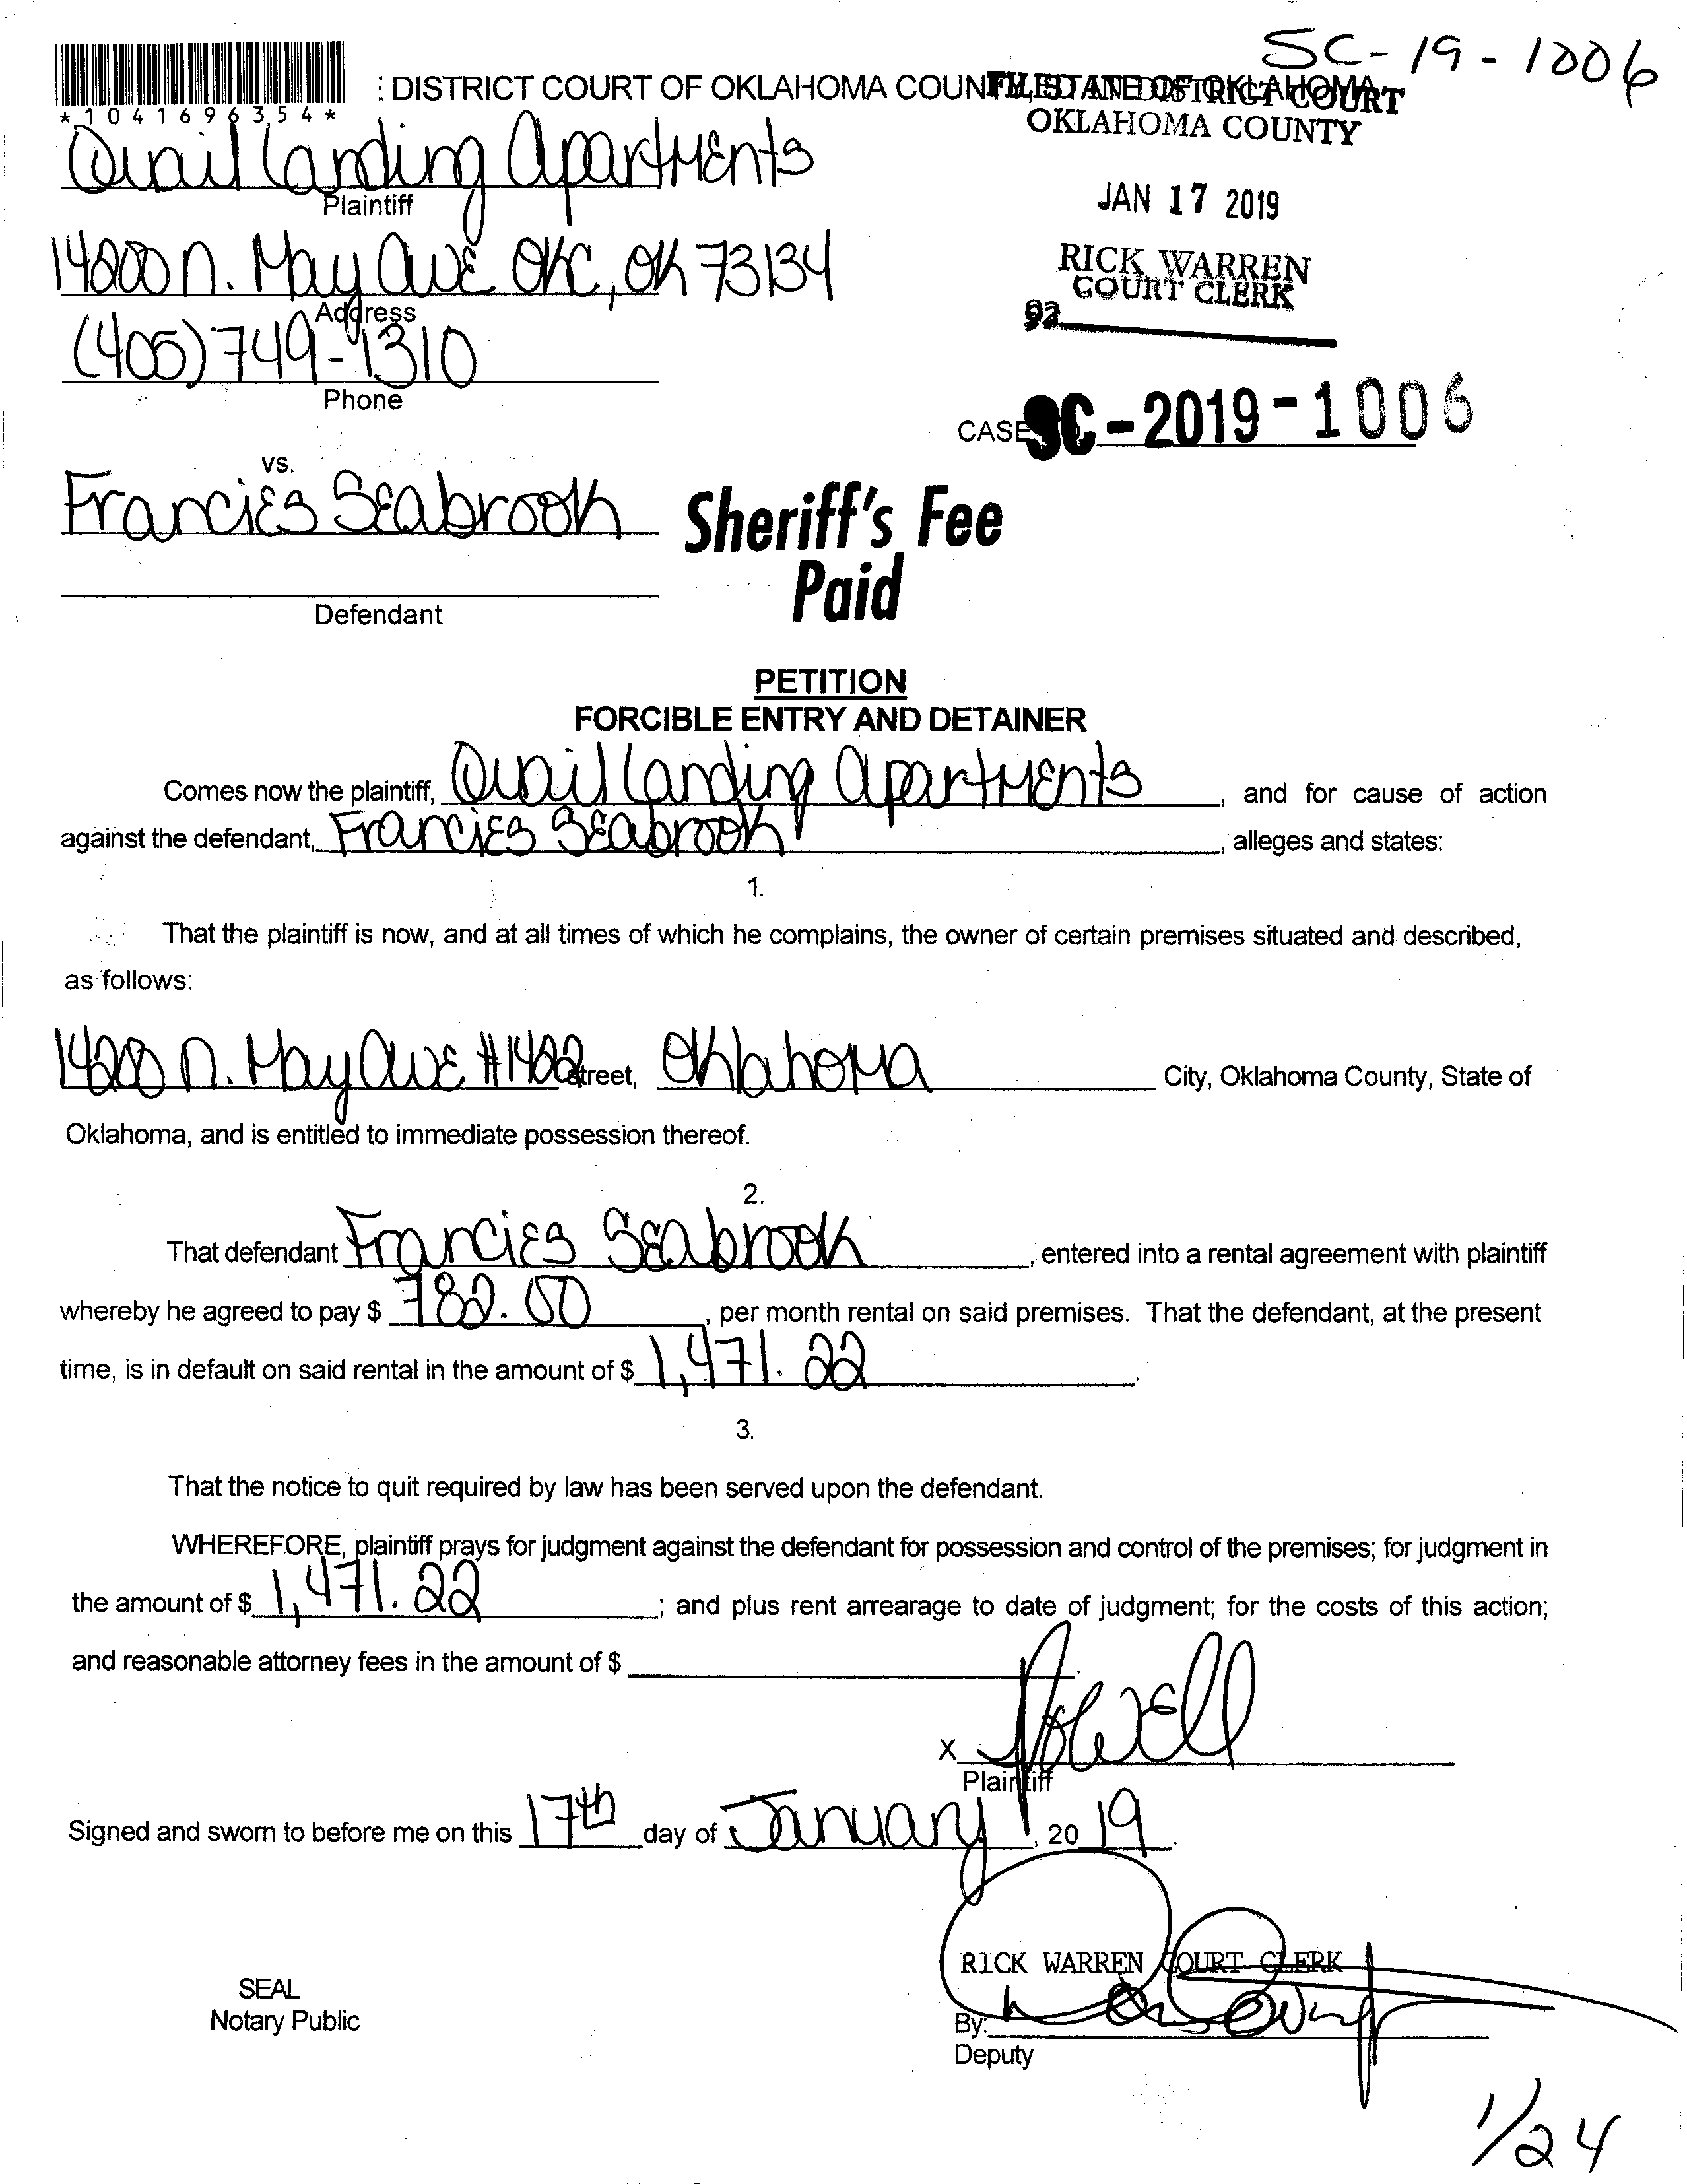 SC-19-1006
*1041696354*
: DISTRICT COURT OF OKLAHOMA COUNTY, STATE OF OKLAHOMA
FILED IN DISTRICT COURT
OKLAHOMA COUNTY
Quail Landing Apartments
Plaintiff
JAN 17 2019
14200 N. May Ave OKC, OK 73134
Address
RICK WARREN
COURT CLERK
92
(405) 749-1310
Phone
CASE SC-2019-1006
vs.
Francies Seabrook
Sheriff's Fee
Paid
Defendant
PETITION
FORCIBLE ENTRY AND DETAINER
Comes now the plaintiff, Quail Landing Apartments, and for cause of action
against the defendant, Francies Seabrook, alleges and states:
1.
That the plaintiff is now, and at all times of which he complains, the owner of certain premises situated and described,
as follows:
14200 N. May Ave #1422 Street, Oklahoma City, Oklahoma County, State of
Oklahoma, and is entitled to immediate possession thereof.
2.
That defendant Francies Seabrook, entered into a rental agreement with plaintiff
whereby he agreed to pay $ 782.00, per month rental on said premises. That the defendant, at the present
time, is in default on said rental in the amount of $ 1,471.22.
3.
That the notice to quit required by law has been served upon the defendant.
WHEREFORE, plaintiff prays for judgment against the defendant for possession and control of the premises; for judgment in
the amount of $ 1,471.22; and plus rent arrearage to date of judgment; for the costs of this action;
and reasonable attorney fees in the amount of $
X
Plaintiff
Signed and sworn to before me on this 17th day of January, 2019.
RICK WARREN COURT CLERK
SEAL
Notary Public
By:
Deputy
1/24